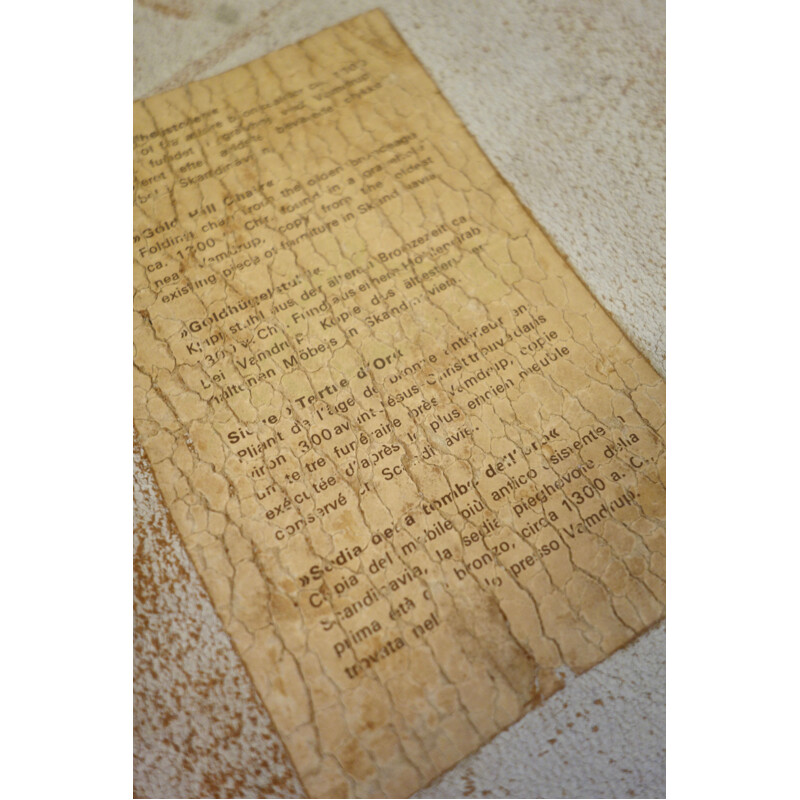 ældre bronzealder ca. 1300
fundet i gravhøj ved Vamdrup
efter ældste bevarede stykke
Skandinavien.
»Gold Hill Chair«
Folding chair from the older bronzeage
ca. 1300 Chr. found in a gravehill
near Vamdrup, copy from the oldest
existing piece of furniture in Skandinavia
»Goldhügelstuhl«
Klappstuhl aus der älteren Bronzezeit ca
1300 v. Chr. Fund aus einem Hünengrab
bei Vamdrup. Kopie des ältesten er-
haltenen Möbels in Skandinavien.
Siège »Tertre d'Or«
Pliant de l'âge de bronze antérieur en
viron 1300 avant Jésus Christ trouvé dans
un tertre funéraire près Vamdrup, copie
exécutée d'après le plus ancien meuble
conservé Scandinavie.
»Sedia della tomba dell'oro«
Copia del mobile più antico esistente in
Scandinavia, la sedia pieghevole della
prima età del bronzo, circa 1300 a. C.,
trovata nel presso Vamdrup.